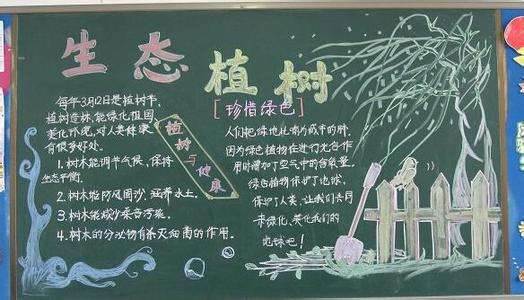 生态植树
每年3月12日是植树节,
植树造林,能绿化祖国
美化环境,对人类健康
有很多好处。
1.树木能调节气候,保持
生态平衡.
2.树木能防风固沙,涵养水土.
3.树木能减少噪音污染.
4.树木的分泌物有杀灭细菌的作用。
植树与健康
[珍惜绿色]
人们把绿地比喻为城市的肺,
因为绿色植物在进行光合作
用时增加了空气中的含氧量.
绿色植物保护了地球,
保护了人类.让我们共同
来绿化、美化我们的
地球吧!